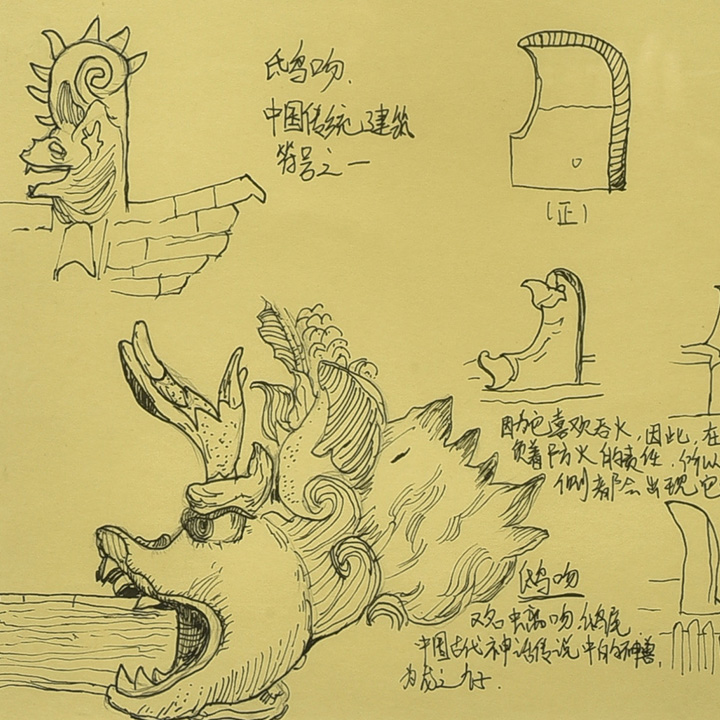 鸱吻.
中国传统建筑
符号之一
(正)
因为它喜欢吞火,因此,在
负着防火的责任.所以
侧都会出现它
鸱吻
又名螭吻、鸱尾
中国古代神话传说中的神兽,
为龙之九子.